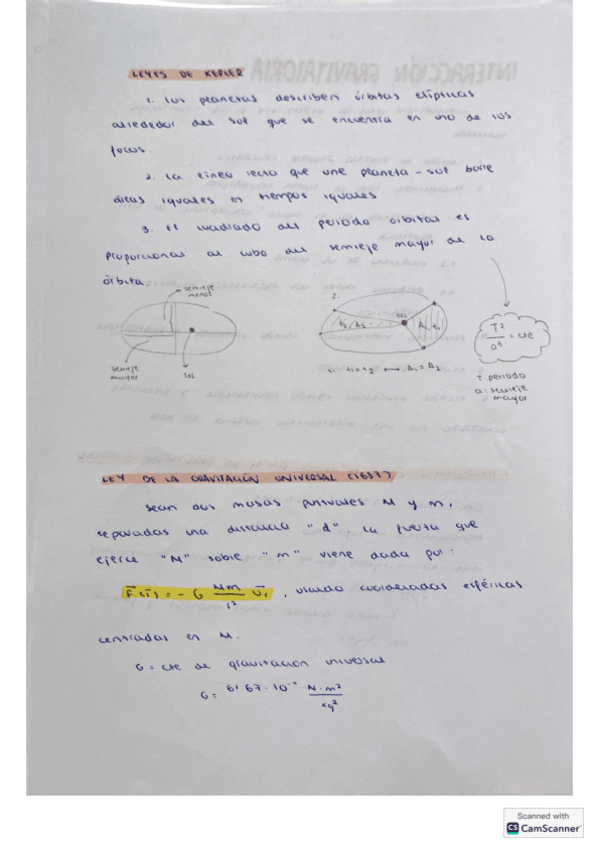 LEYES DE KEPLER
1. Los planetas describen órbitas elípticas
alrededor del sol que se encuentra en uno de los
focos.
2. La línea recta que une planeta - sol barre
áreas iguales en tiempos iguales
3. El cuadrado del periodo órbitas es
proporcional al cubo del semieje mayor de la
órbita
semieje
menor
semieje
mayor
sol
2.
sol
t₂ A₂
A₁ t₁
A₁ = A₂
T²/a³ = cte
T: periodo
a: semieje
mayor
LEY DE LA GRAVITACIÓN UNIVERSAL (1687)
Sean dos masas puntuales M y m,
separadas una distancia "d", la fuerza que
ejerce "M" sobre "m" viene dada por:
F(r) = - G Mm/r² Ur, usando coordenadas esféricas
centradas en M.
G = cte de gravitación universal
G = 6'67·10⁻¹¹ N·m²/kg²
INTERACCIÓN GRAVITATORIA
Scanned with
CS CamScanner